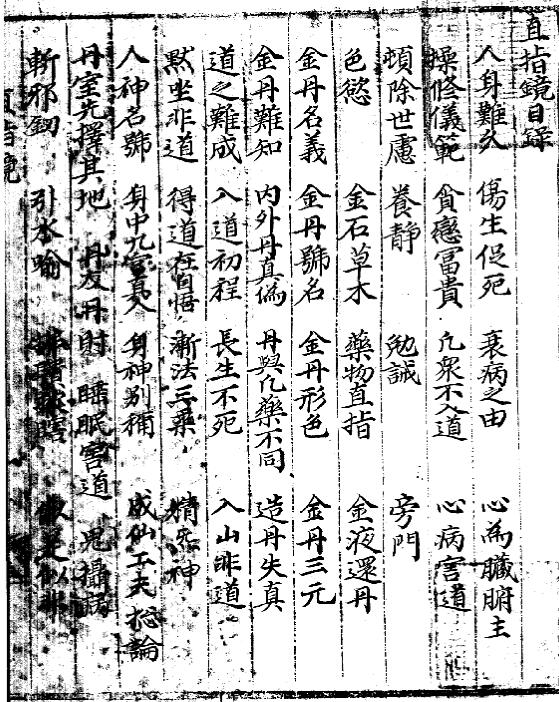 直指鏡目錄
人身難久 傷生促死 衰病之由 心為臟腑主
操修儀範 貪戀冨貴 凢衆不入道 心病害道
頓除世慮 養靜 勉誡 旁門
色慾 金石草木 藥物直指 金液還丹
金丹名義 金丹號名 金丹形色 金丹三元
金丹難知 內外丹真偽 丹與凢藥不同 造丹失真
道之難成 入道初程 長生不死 入山非道
默坐非道 得道在自悟 漸法三藥 精炁神
人神名號 身中九宮真人 身神別稱 成仙工夫總論
丹室先擇其地 丹友丹財 睡眠害道 鬼攝病
斬邪劒 引水喻
直指鏡